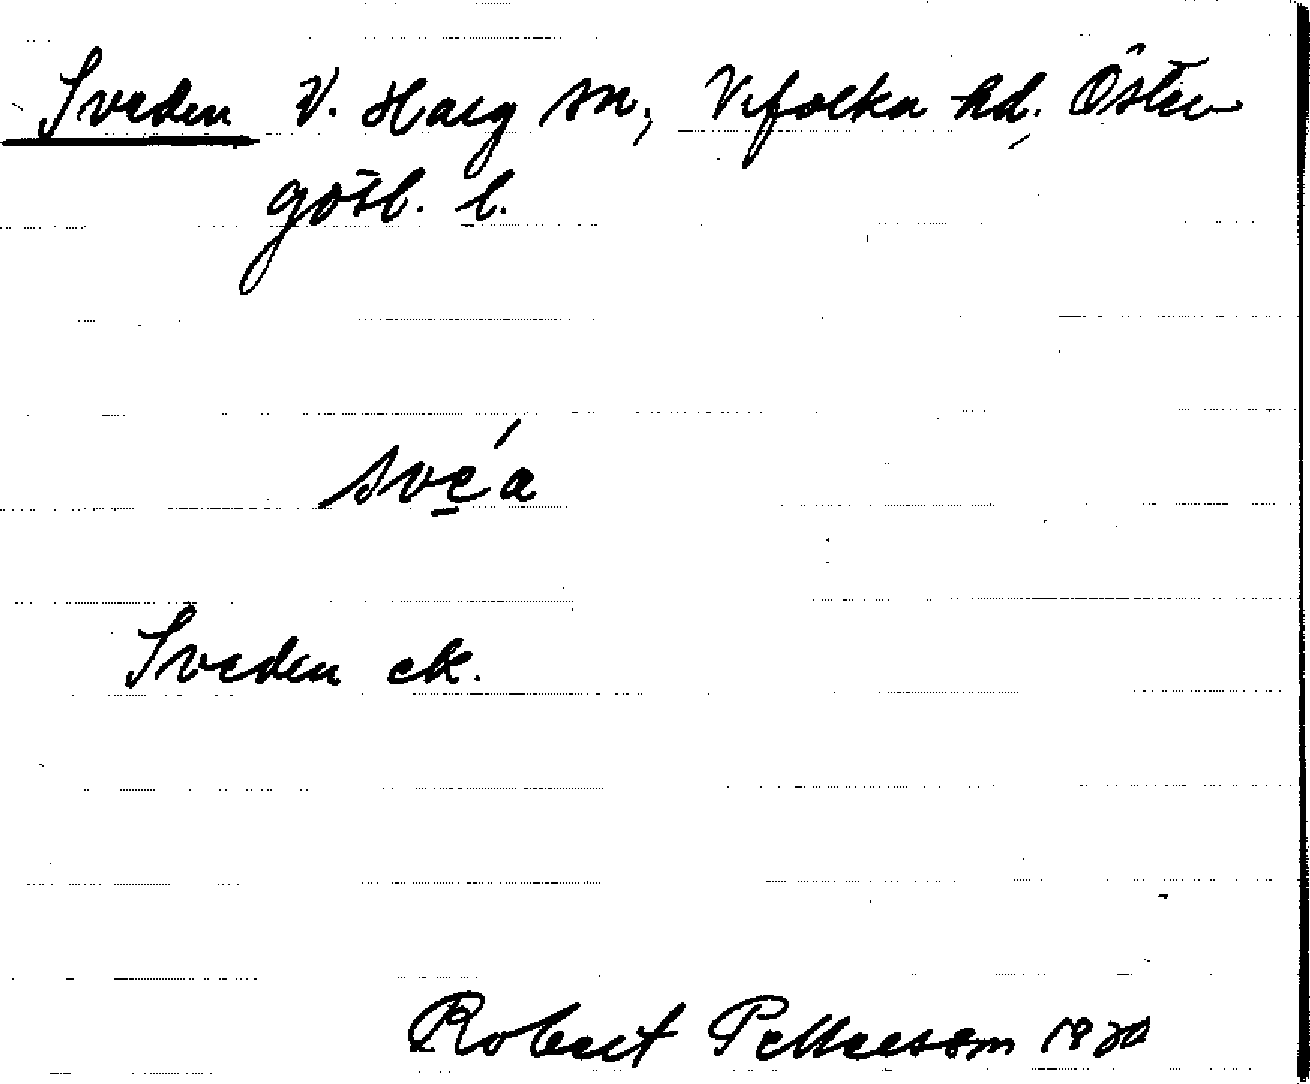 Sveden V. Harg sn, Vifolka hd. Öster
götl. l.
sve̲´a
Sveden ek.
Robert Pettersson 1920